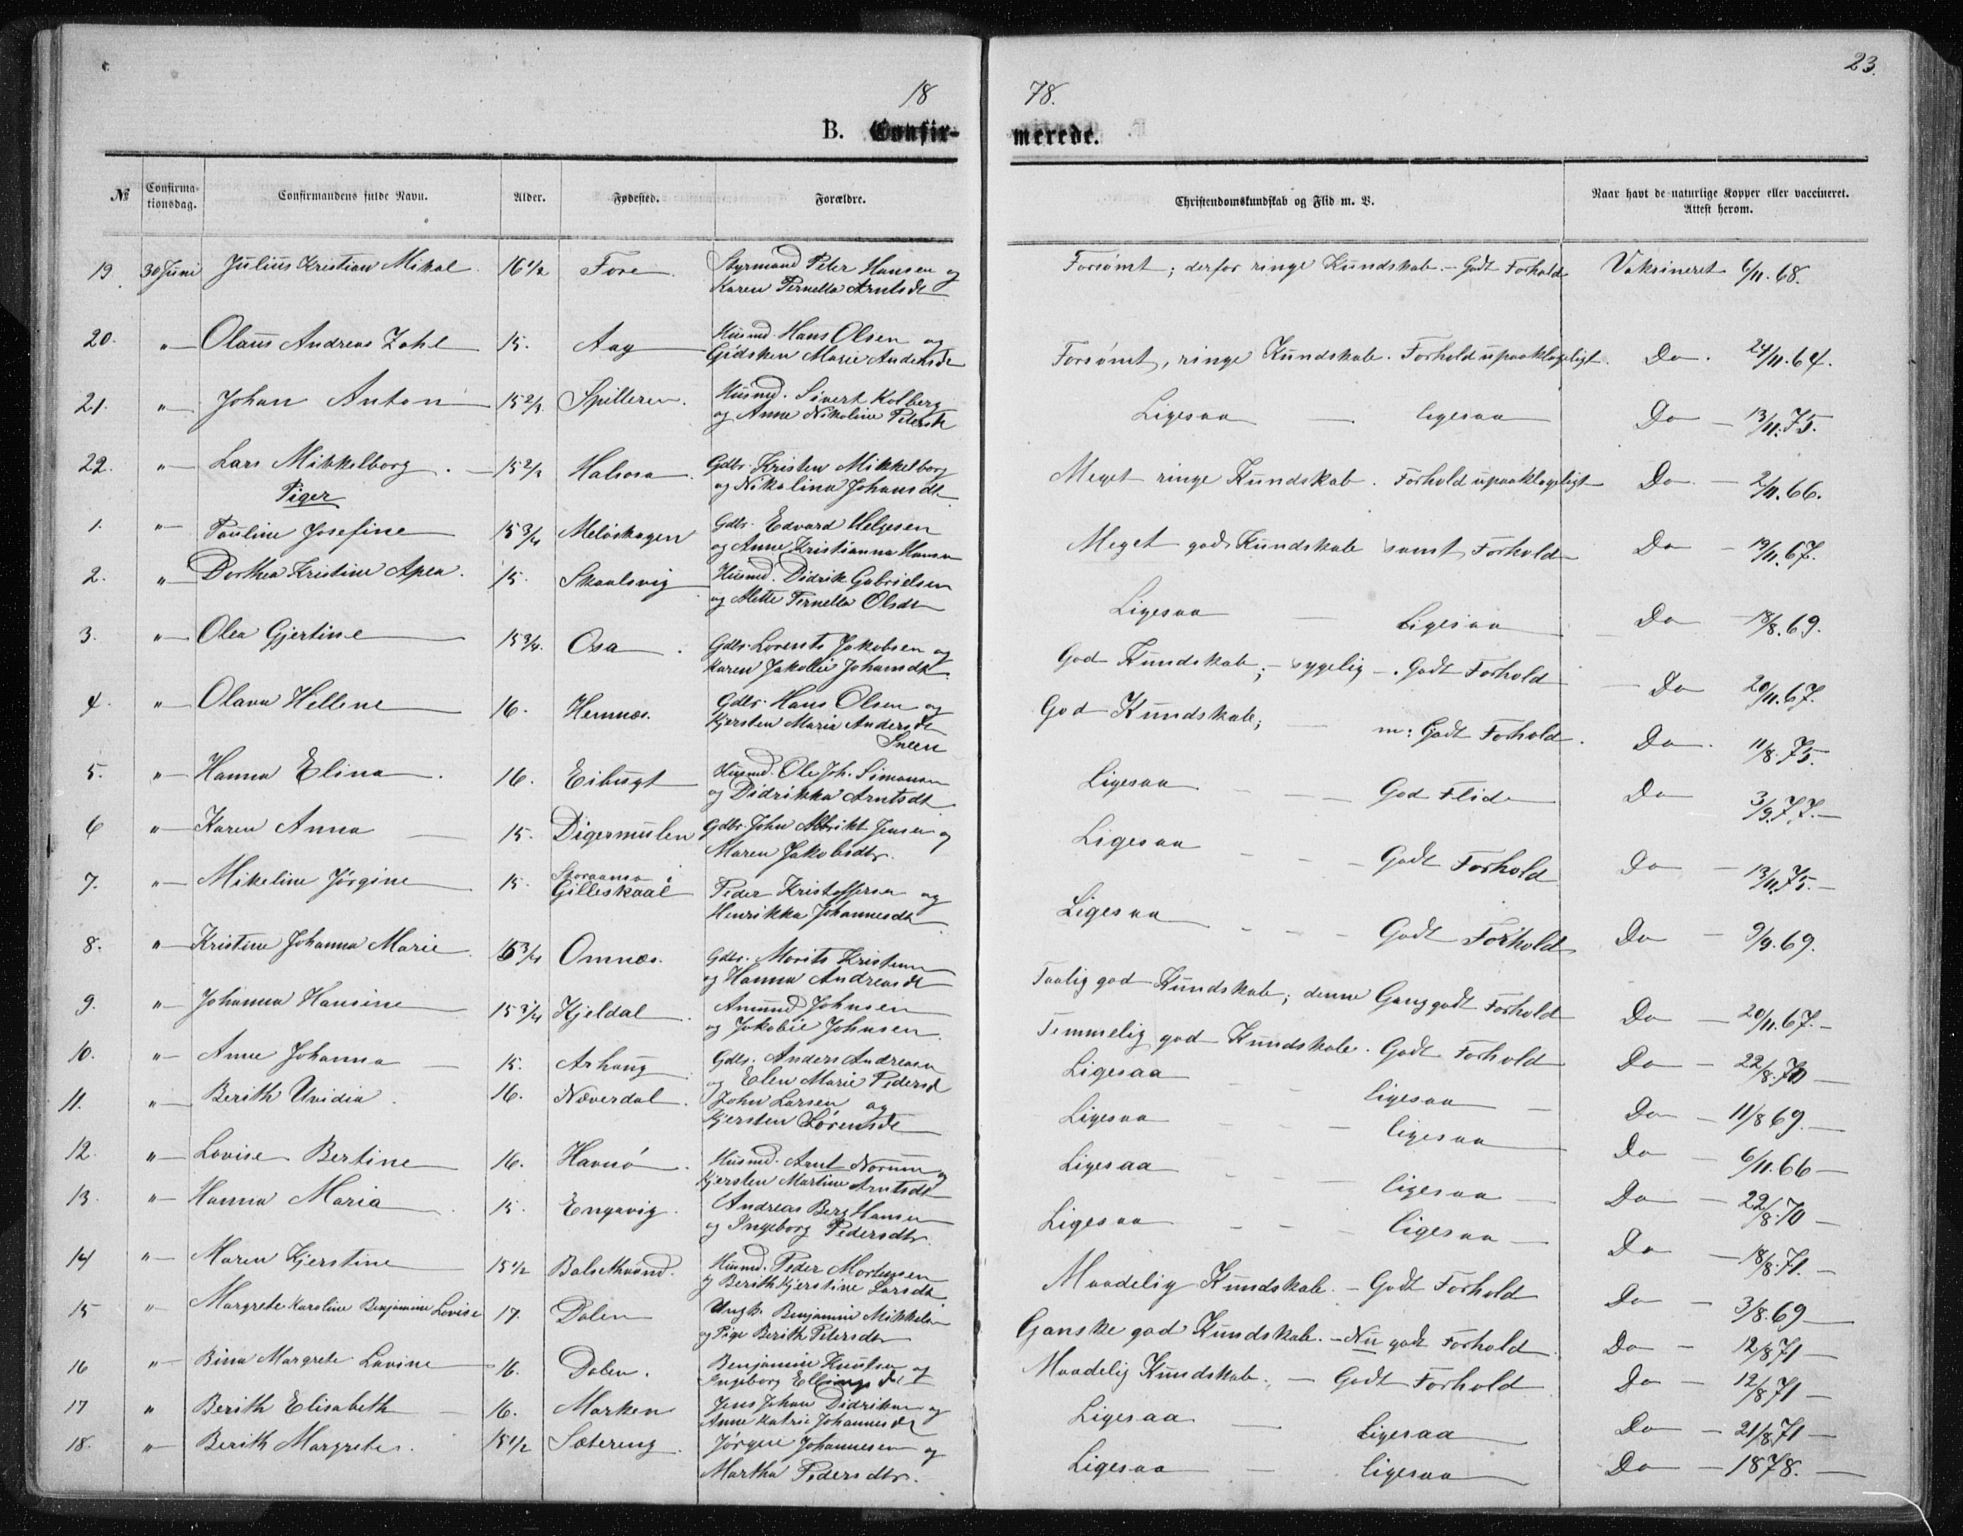 23.
18 78.
B. Confirmerede.
№ Confirmationsdag. Confirmandens fulde Navn. Alder. Fødested. Forældre. Christendomskundskab og Flid m. V. Naar havt de naturlige Kopper eller vaccineret. Attest herom.
19. 30 Juni Julius Kristian Mikal 16 1/2 Fore. Styrmand Peter Hansen og Forsømt; derfor ringe Kundskab. - Godt Forhold Vaksineret 6/11.68.
Karen Pernella Arntsdt
20. " Olaus Andreas Zahl 15. Aag Husmd. Hans Olsen og Forsømt, ringe Kundskab. Forhold upaaklageligt. Do. 24/11.64.
Gidsken Marie Andersdt
21. " Johan Anton 15 2/3 Spilleren. Husmd. Sivert Kolberg Ligesaa — ligesaa Do — 13/11.75.
og Anne Nikoline Petersdt
22. " Lars Mikkelborg. 15 2/3 Halsosa. Gdbr. Kristen Mikkelborg Meget ringe Kundskab. Forhold upaaklageligt Do. — 2/11.66.
og Nikolina Johansdt
Piger
1. " Pauline Josefine 15 3/4 Meløskagen Gdbr. Edvard Helgesen Meget god Kundskab samt Forhold Do — 19/11.67.
og Anne Kristianna Hansen
2. " Dorthea Kristine Apea. 15. Skaalsvig Husmd. Didrik Gabrielsen Ligesaa — Ligesaa Do — 18/8.69.
og Mette Pernella Olsdt
3. " Olea Gjertine 15 3/4. Osa. Gdbr. Lorents Jakobsen og God Kundskab; - sygelig -. Godt Forhold — Do 20/11.67.
Karen Jakobie Johansdt
4. " Olava Hellene 16. Hemnes. Gdbr. Hans Olsen og God Kundskab; — m: Godt Forhold. Do. 11/8.75.
Kjersten Maria Andersdt
Sneen
5. " Hanna Elina. 16. Eibugt Husmd. Ole Joh. Simonsen Ligesaa — God Flid Do 3/9.77.—
og Didrikka Arntsdt
6 " Karen Anna 15. Digermulen Gdbr. John Albrikt Jensen og Ligesaa — Godt Forhold Do — 13/11.75.—
Maren Jakobsdtr.
7. " Mikeline Jørgine 15. Sporaansa i Gilleskaal Peder Kristoffersen og Ligesaa — Godt Forhold Do — 9/9.69.
Henrikka Johannesdt
8. " Kristine Johanna Marie 15 3/4 Omnes. Gdbr. Morits Kristensen Taalig god Kundskab; denne Gang godt Forhold Do — 20/11.67.—
og Hanna Andreasdt
9. " Johanna Hansine 15 3/4 Kjeldal. Amund Johnsen Temmelig god Kundskab. Godt Forhold Do — 22/8.70 —
og Jakobie Johnsen
10. " Anne Johanna 15. Arhaug Gdbr. Anders Andreasen Ligesaa — ligesaa — Do — 11/8 69.—
og Elen Marie Pedersdt
11. " Berith Uvidia. 16. Næverdal. John Larsen og Ligesaa — ligesaa Do — 6/11.66 —
Kjersten Lorentsdt
12. " Lovise Bertine 16. Havnø. Husmd. Arnt Norum og Ligesaa — ligesaa — Do — 22/8.70 —
Kjersten Martine Arntsdt
13. " Hanna Maria 15. Engavig. Andreas Berg Hansen Ligesaa — ligesaa — Do — 18/8.71.—
og Ingeborg Pedersdtr.
14 " Maren Kjerstine 15 1/2 Balsethvand. Husmd. Peder Mortensen Maadelig Kundskab. - Godt Forhold Do — 3/8.69 —
og Berith Kjerstine Larsdt
15 " Margrete Karoline Benjamine Lovise 17. Dalen Ungk. Benjamin Mikkelsen Ganske god Kundskab. - Nu godt Forhold. Do — 12/8 71 —
og Pige Berith Petersdtr
16 " Bina Margrete Lavine 16. Dalen. Benjamin Knutsen og Maadelig Kundskab. — Godt Forhold Do — 12/8 71 —
Ingeborg Ellingsdt
17 " Berith Elisabeth 16. Marken Jens Johan Didriksen og Ligesaa — Ligesaa Do — 21/8.71 —
Anne Katrie Johannesdt
18. " Berith Margrete. 15 1/2 Sætereng. Jørgen Johannesen og Ligesaa — ligesaa Do — 1878.—
Martha Pedersdtr.